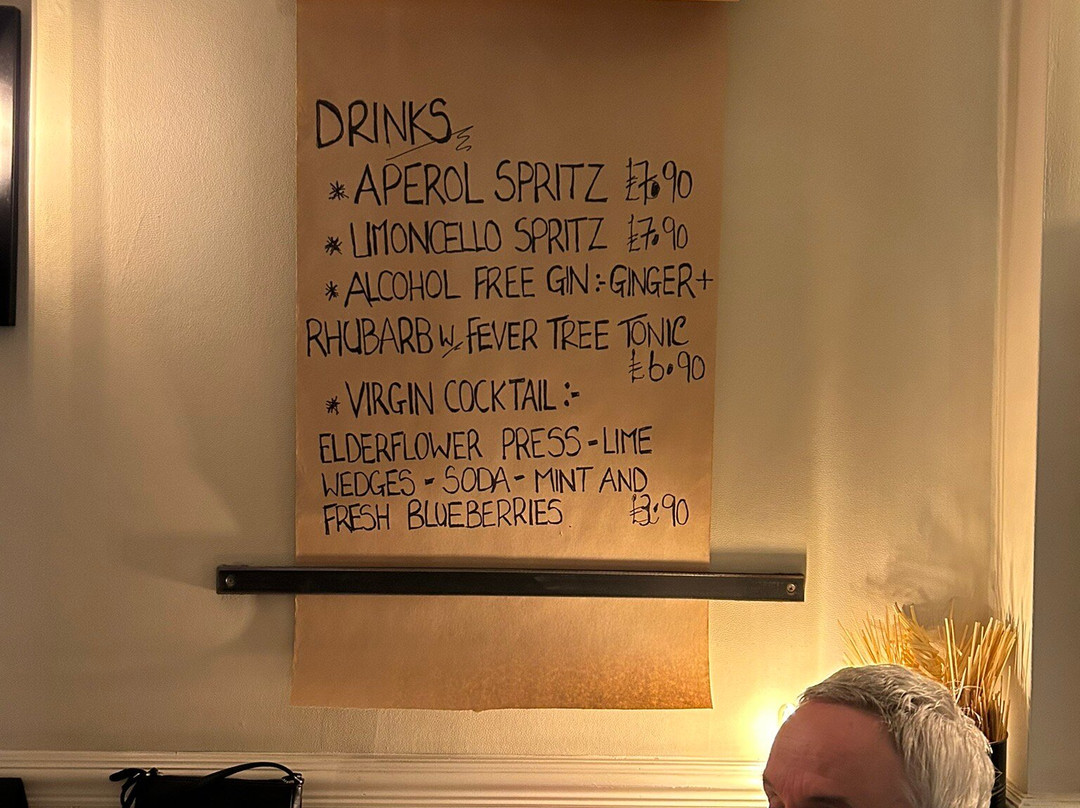 DRINKS
* APEROL SPRITZ £7.90
* LIMONCELLO SPRITZ £7.90
* ALCOHOL FREE GIN:- GINGER+
RHUBARB w/ FEVER TREE TONIC
£6.90
* VIRGIN COCKTAIL:-
ELDERFLOWER PRESS - LIME
WEDGES - SODA - MINT AND
FRESH BLUEBERRIES £3.90